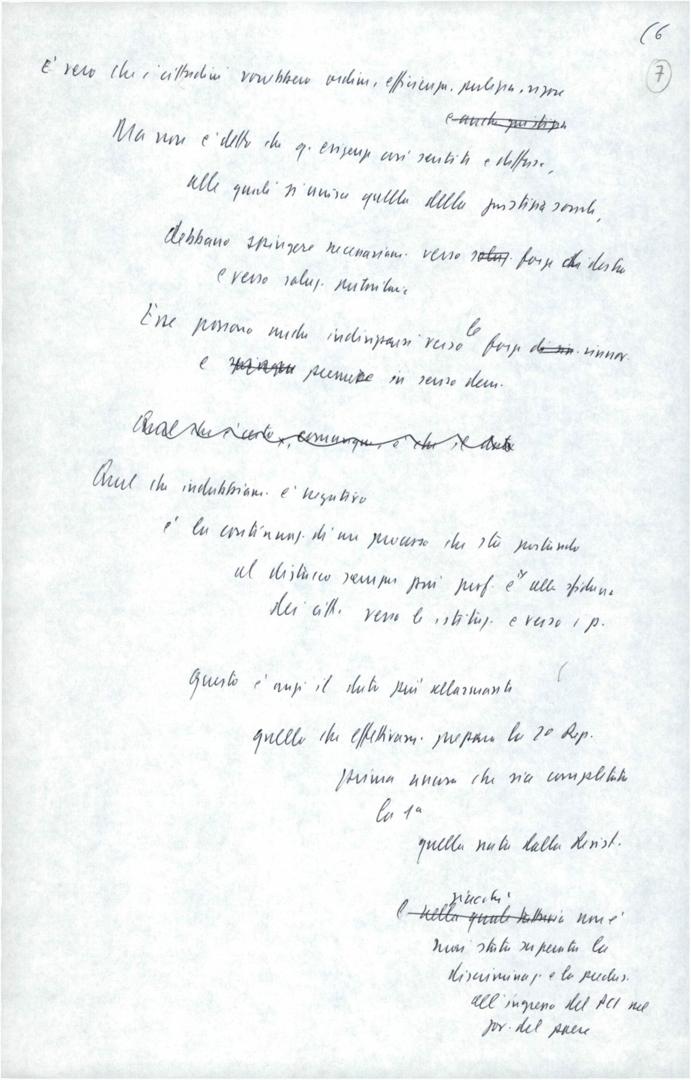 (6
7
È vero che i cittadini vorrebbero ordine, efficienza, pulizia, rigore
e anche giustizia
Ma non è detto che q. esigenze così sentite e diffuse,
alle quali si unisce quella della giustizia sociale,
debbano spingere necessariam. verso soluz. forze di destra
e verso soluz. autoritarie
Esse possono anche indirizzarsi verso le forze di sin. rinnov.
e spingere premere in senso dem.
Quel che è certo, comunque, è che il dato
Quel che indubbiam. è negativo
è la continuaz. di un processo che sta portando
al distacco sempre più prof. e alla sfiducia
dei citt. verso le istituz. e verso i p.
Questo è anzi il dato più allarmante
quello che effettivam. prepara la 2ª Rep.
prima ancora che sia completata
la 1ª
quella nata dalla Resist.
giacché
e nella quale tuttavia non è
mai stata superata la
discriminaz. e la preclus.
all'ingresso del PCI nel
gov. del paese